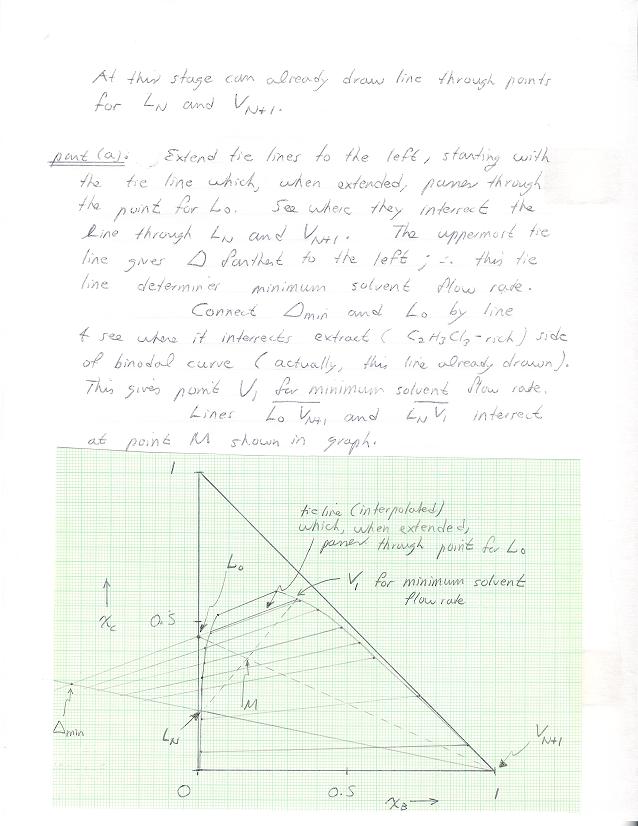 At this stage can already draw line through points
for LN and VN+1.
part (a): Extend tie lines to the left, starting with
the tie line which, when extended, passes through
the point for L0. See where they intersect the
line through LN and VN+1. The uppermost tie
line gives Δ farthest to the left; ∴ this tie
line determines minimum solvent flow rate.
Connect Δmin and L0 by line
& see where it intersects extract (C2H3Cl3-rich) side
of binodal curve (actually, this line already drawn).
This gives point V1 for minimum solvent flow rate.
Lines L0 VN+1 and LN V1 intersect
at point M shown in graph.
1
tie line (interpolated)
which, when extended,
passes through point for L0
L0
V1 for minimum solvent
flow rate
xC
0.5
M
Δmin
LN
VN+1
0
0.5
1
xB